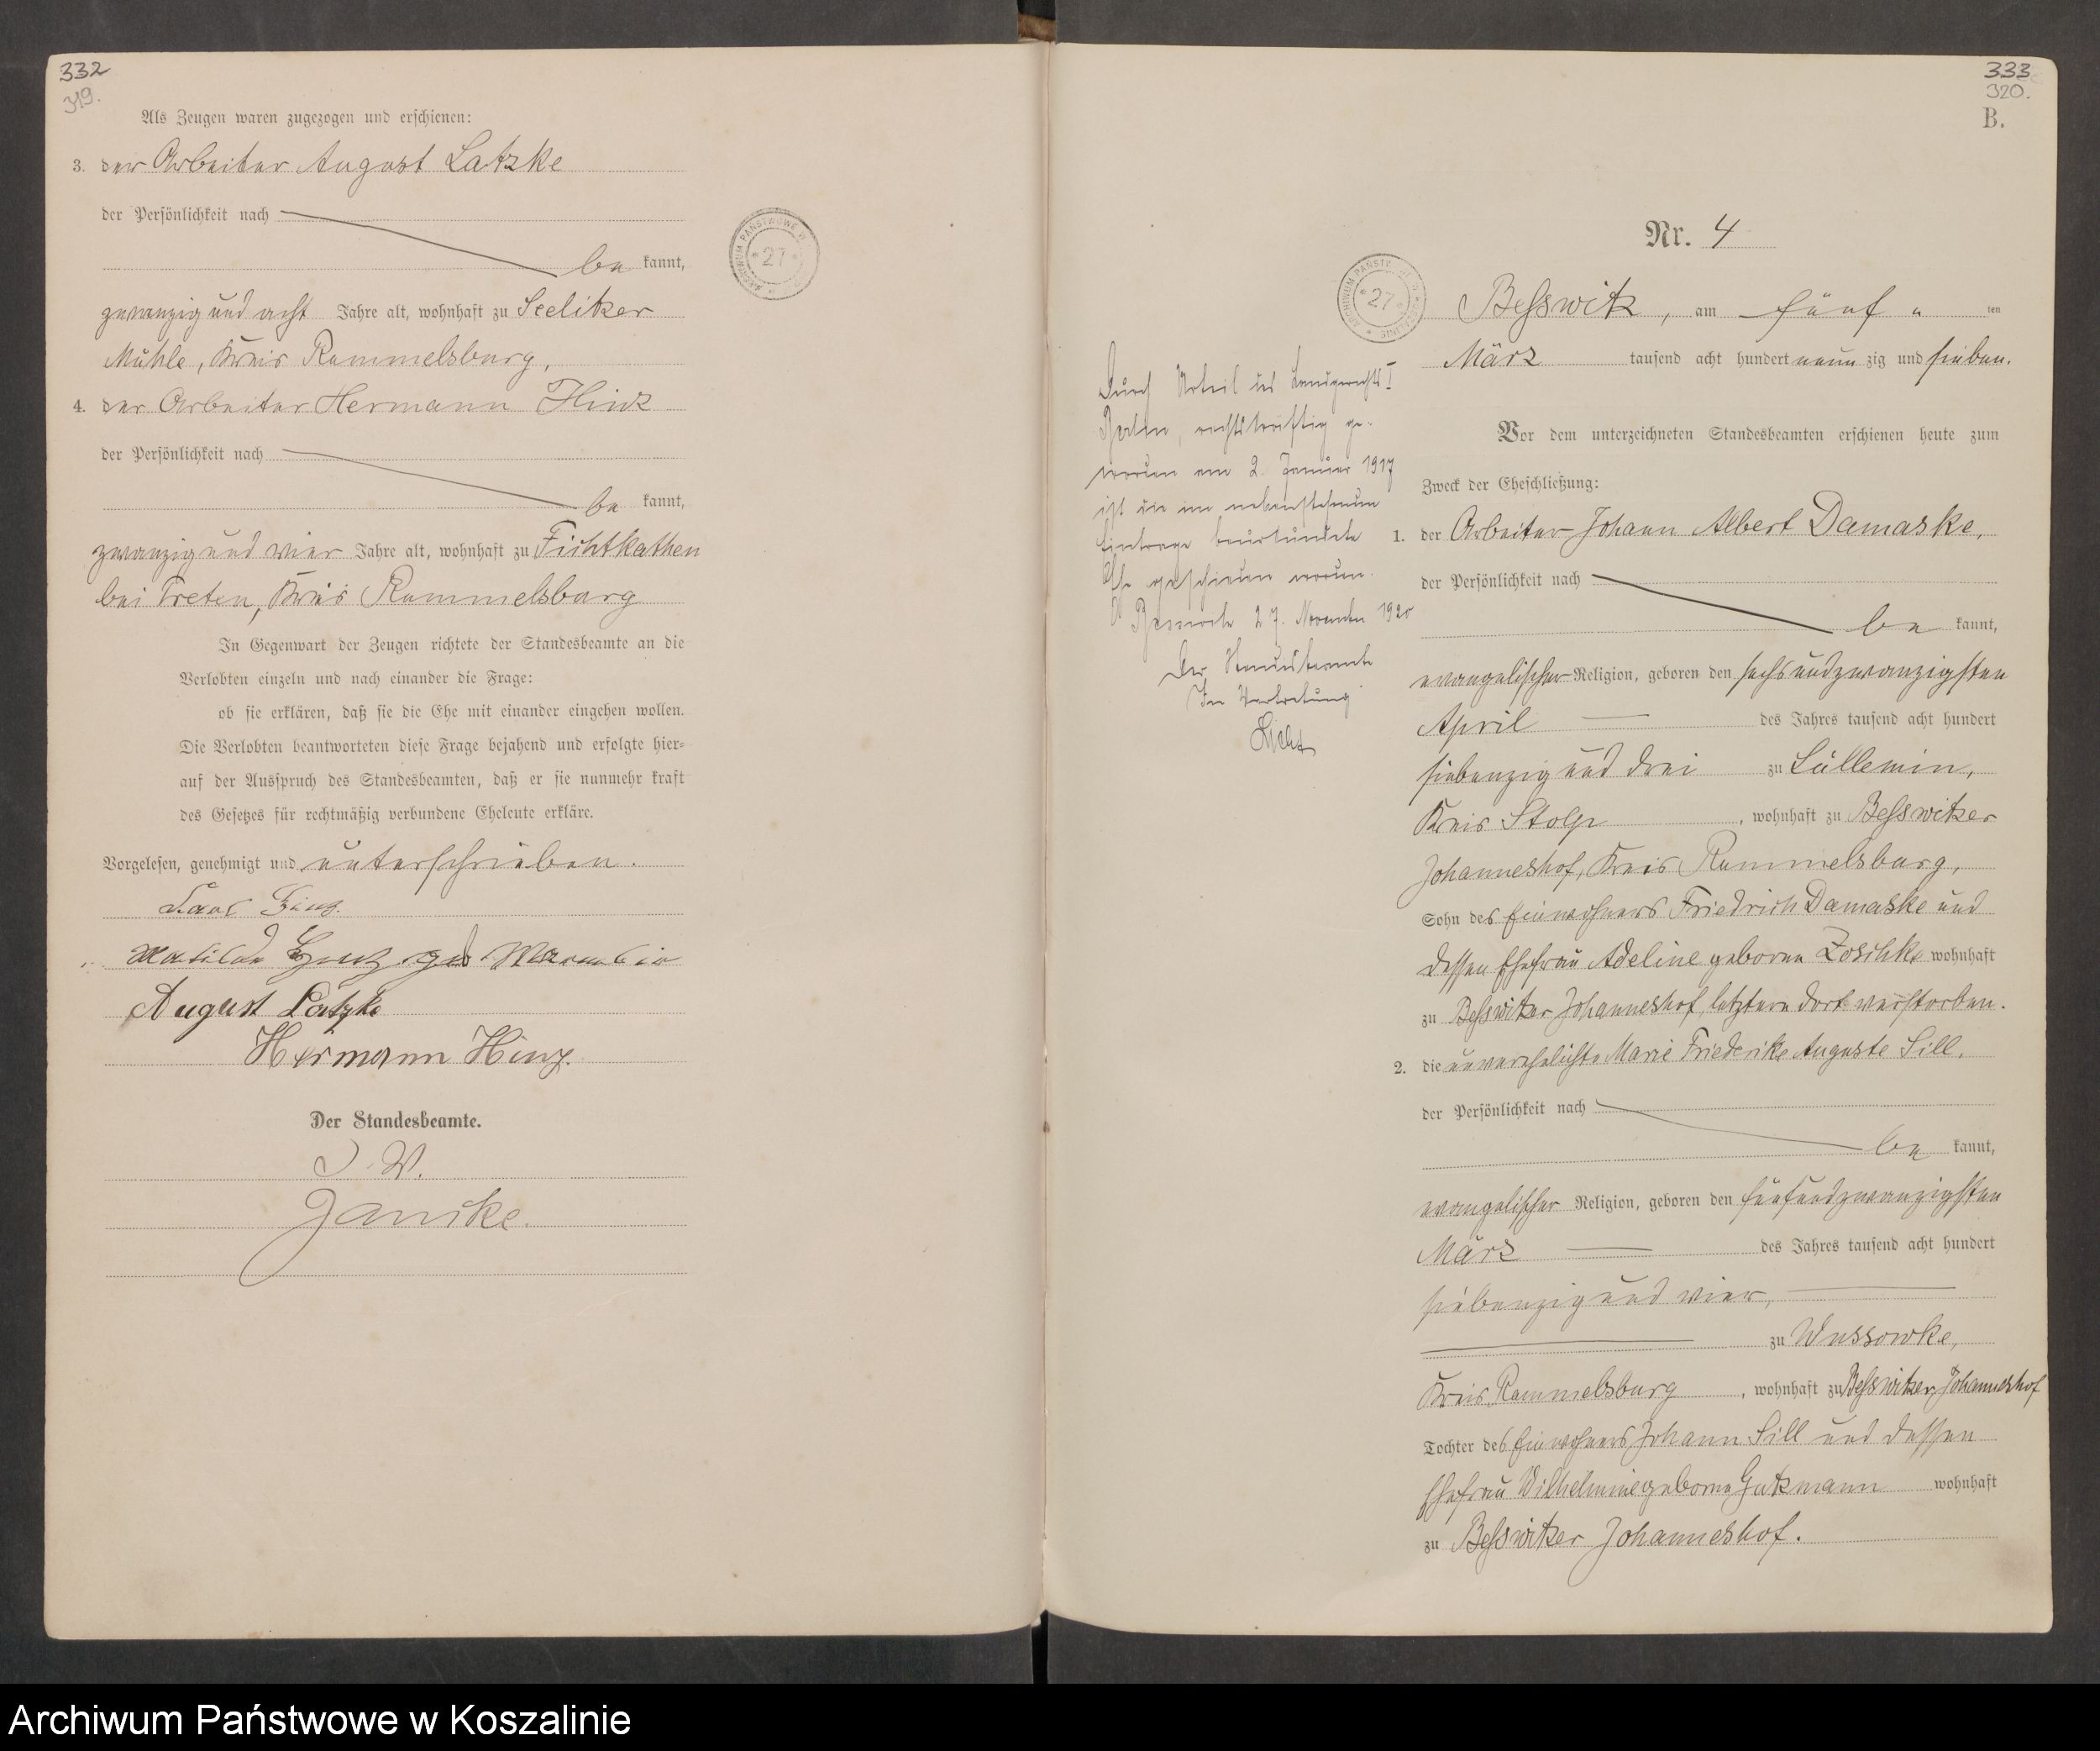 332
319.
Als Zeugen waren zugezogen und erschienen:
3. der Arbeiter August Latzke
der Persönlichkeit nach
be kannt,
zwanzig und acht Jahre alt, wohnhaft zu Seelitzer
Mühle, Kreis Rummelsburg,
4. der Arbeiter Hermann Hinz
der Persönlichkeit nach
be kannt,
zwanzig und vier Jahre alt, wohnhaft zu Fichtkathen
bei Treten, Kreis Rummelsburg
In Gegenwart der Zeugen richtete der Standesbeamte an die
Verlobten einzeln und nach einander die Frage:
ob sie erklären, daß sie die Ehe mit einander eingehen wollen.
Die Verlobten beantworteten diese Frage bejahend und erfolgte hier-
auf der Ausspruch des Standesbeamten, daß er sie nunmehr kraft
des Gesetzes für rechtmäßig verbundene Eheleute erkläre.
Vorgelesen, genehmigt und unterschrieben.
Hinz.
Hinz geb
August Latzke
Hermann Hinz.
Der Standesbeamte.
J. V.
Janike.
ARCHIWUM PAŃSTWOWE W
27
333
320.
B.
Nr. 4
ARCHIWUM PAŃSTW
27
Besswitz, am fünf ten
März tausend acht hundert neun zig und sieben.
Vor dem unterzeichneten Standesbeamten erschienen heute zum
Zweck der Eheschließung:
1. der Arbeiter Johann Albert Damaske,
der Persönlichkeit nach
be kannt,
evangelischer Religion, geboren den sechsundzwanzigsten
April des Jahres tausend acht hundert
siebenzig und drei zu Lüllemin,
Kreis Stolp, wohnhaft zu Besswitzer
Johanneshof, Kreis Rummelsburg,
Sohn des Einwohners Friedrich Damaske und
dessen Ehefrau Adeline geborne Zoschke wohnhaft
zu Besswitzer Johanneshof, letztere dort verstorben.
2. die unverehelichte Marie Friederike Auguste Sill,
der Persönlichkeit nach
be kannt,
evangelischer Religion, geboren den fünfundzwanzigsten
März des Jahres tausend acht hundert
siebenzig und vier,
zu Wussowke,
Kreis Rummelsburg, wohnhaft zu Besswitzer Johanneshof
Tochter des Einwohners Johann Sill und dessen
Ehefrau Wilhelmine geborne Gutzmann wohnhaft
zu Besswitzer Johanneshof.
Durch Urteil des Landgerichts I
Berlin, rechtskräftig ge-
worden am 2. Januar 1917
ist die im nebenstehenden
Eintrage beurkundete
Ehe geschieden worden.
27. November 1920
Der Standesbeamte
In Vertretung
Archiwum Państwowe w Koszalinie